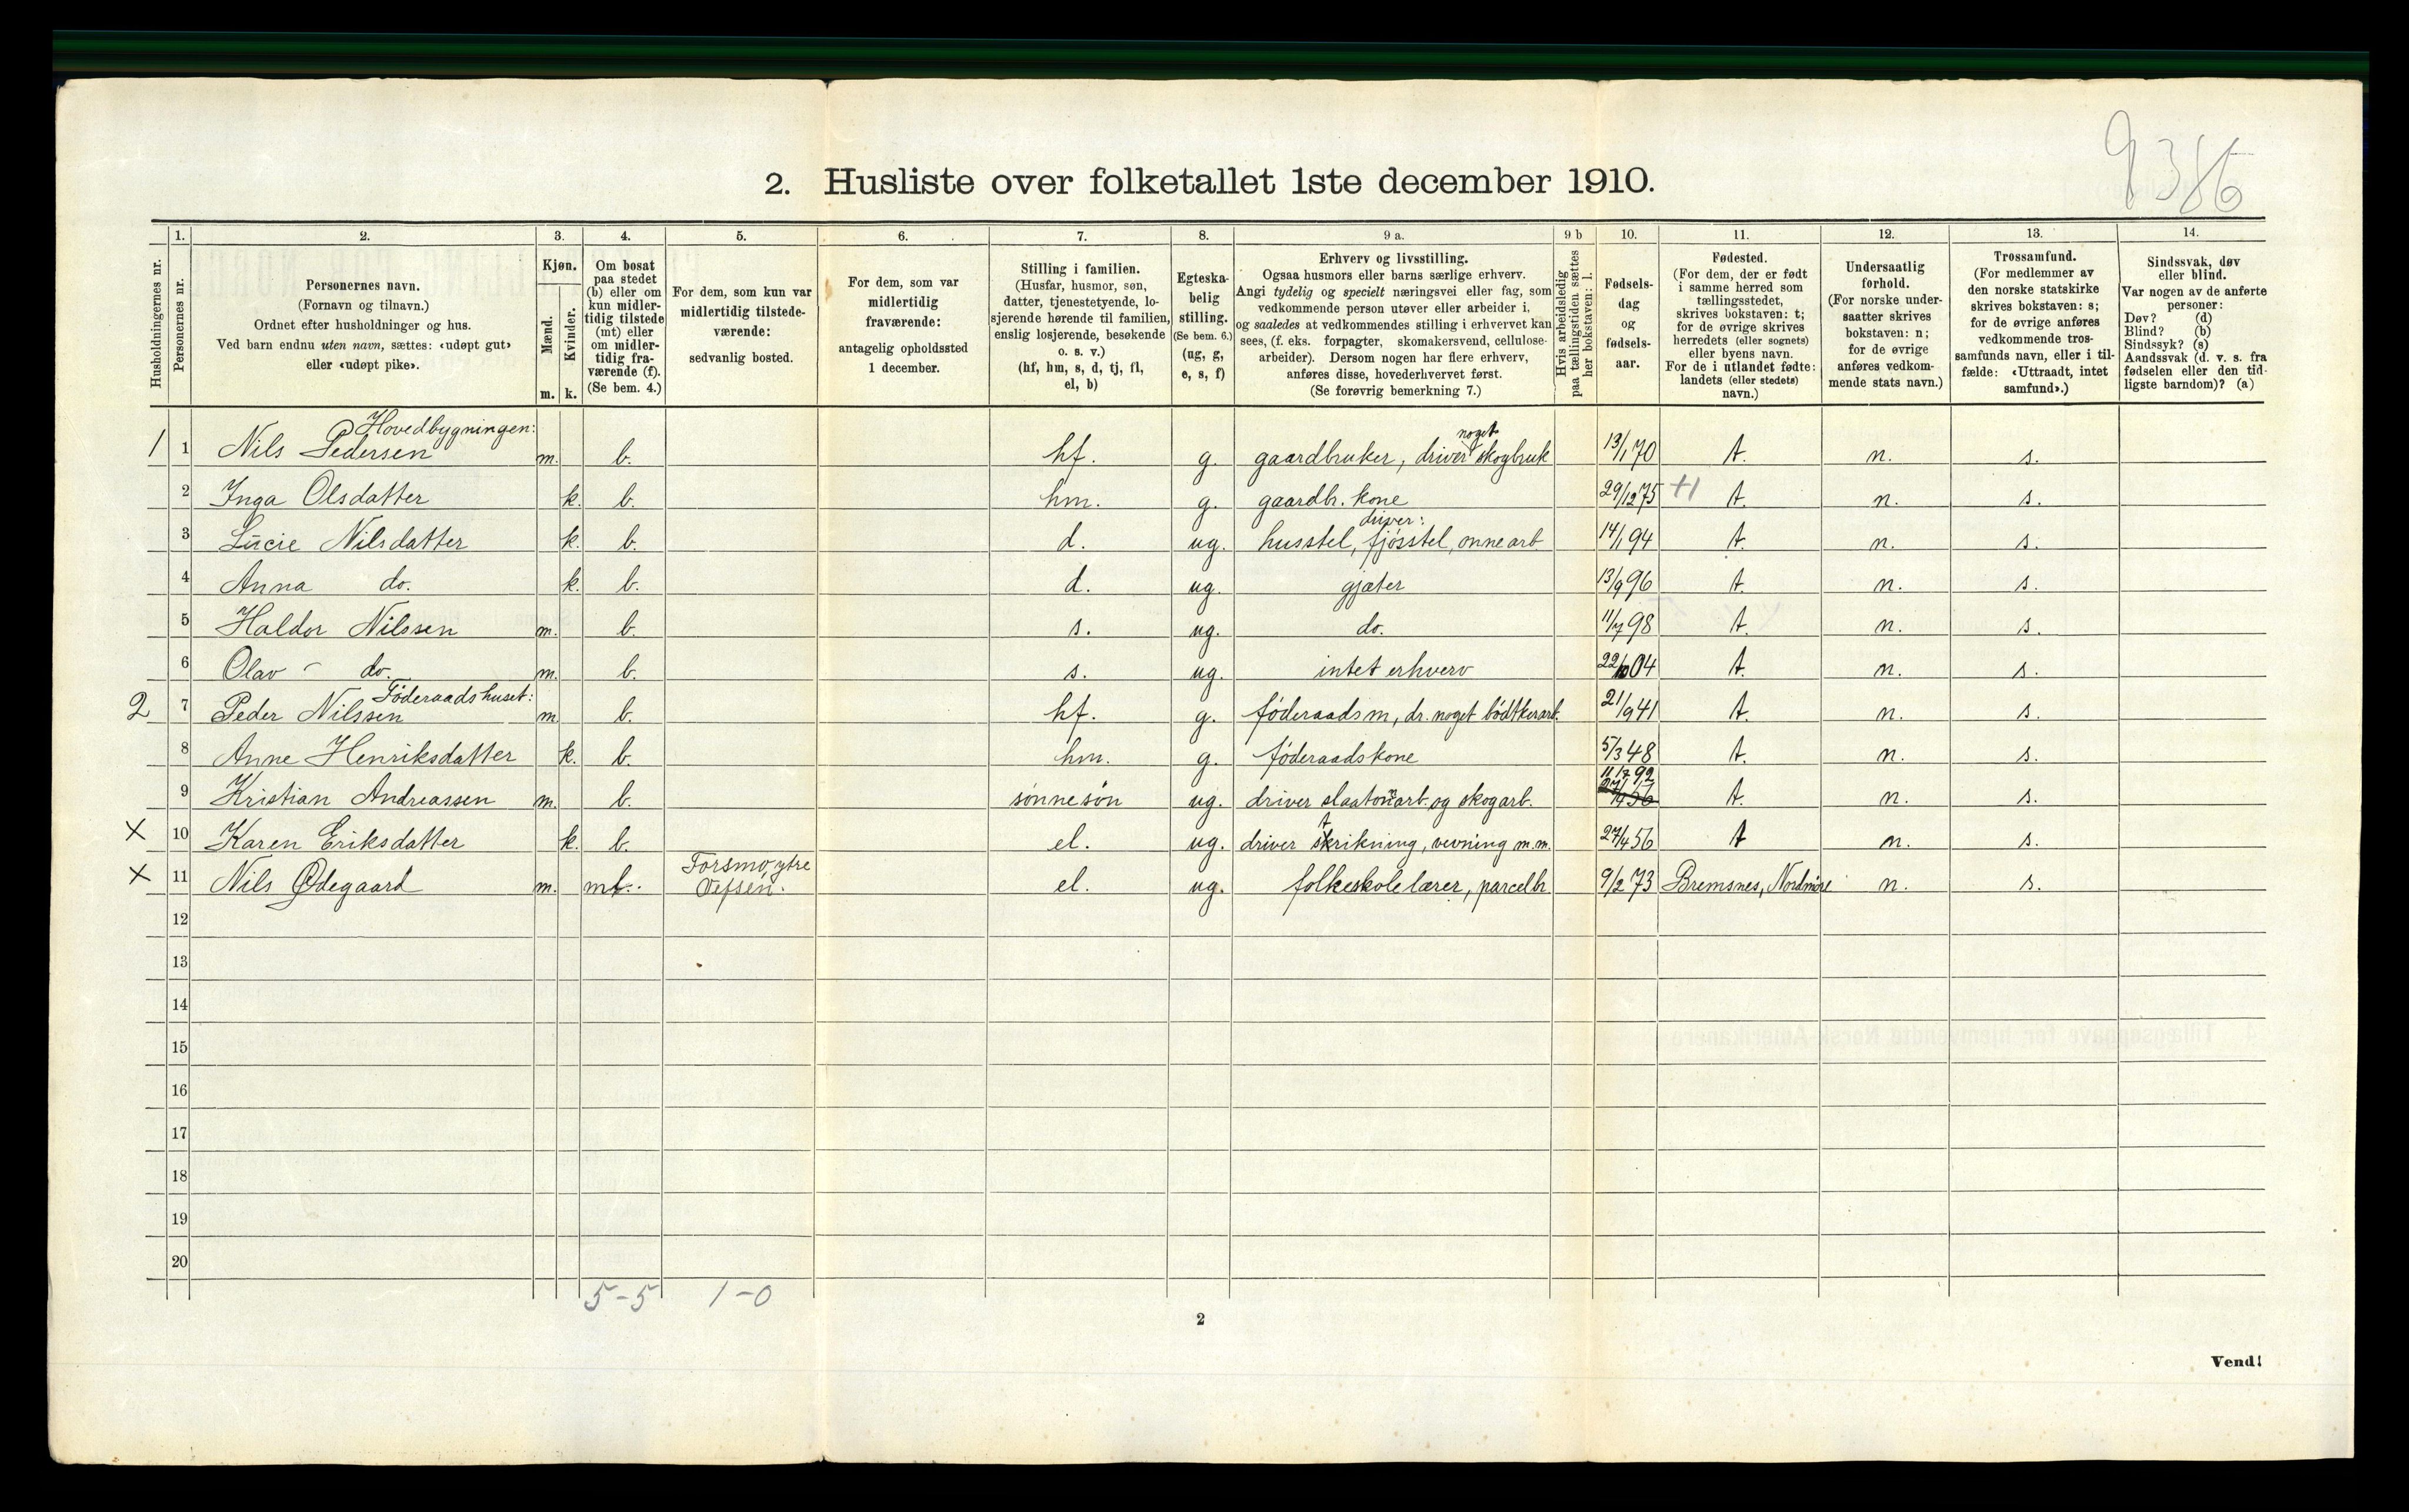 9386
2. Husliste over folketallet 1ste december 1910.
Husholdningernes nr.
1.
Personernes nr.
2.
Personernes navn.
(Fornavn og tilnavn.)
Ordnet efter husholdninger og hus.
Ved barn endnu uten navn, sættes: «udøpt gut»
eller «udøpt pike».
3.
Kjøn.
Mænd.
Kvinder.
m. k.
4.
Om bosat
paa stedet
(b) eller om
kun midler-
tidig tilstede
(mt) eller
om midler-
tidig fra-
værende (f).
(Se bem. 4.)
5.
For dem, som kun var
midlertidig tilstede-
værende:
sedvanlig bosted.
6.
For dem, som var
midlertidig
fraværende:
antagelig opholdssted
1 december.
7.
Stilling i familien.
(Husfar, husmor, søn,
datter, tjenestetyende, lo-
sjerende hørende til familien,
enslig losjerende, besøkende
o. s. v.)
(hf, hm, s, d, tj, fl,
el, b)
8.
Egteska-
belig
stilling.
(Se bem. 6.)
(ug, g,
e, s, f)
9 a.
Erhverv og livsstilling.
Ogsaa husmors eller barns særlige erhverv.
Angi tydelig og specielt næringsvei eller fag, som
vedkommende person utøver eller arbeider i,
og saaledes at vedkommendes stilling i erhvervet kan
sees, (f. eks. forpagter, skomakersvend, cellulose-
arbeider). Dersom nogen har flere erhverv,
anføres disse, hovederhvervet først.
(Se forøvrig bemerkning 7.)
9 b
Hvis arbeidsledig
paa tællingstiden sættes
her bokstaven: l.
10.
Fødsels-
dag
og
fødsels-
aar.
11.
Fødested.
(For dem, der er født
i samme herred som
tællingsstedet,
skrives bokstaven: t;
for de øvrige skrives
herredets (eller sognets)
eller byens navn.
For de i utlandet fødte:
landets (eller stedets)
navn.)
12.
Undersaatlig
forhold.
(For norske under-
saatter skrives
bokstaven: n;
for de øvrige
anføres vedkom-
mende stats navn.)
13.
Trossamfund.
(For medlemmer av
den norske statskirke
skrives bokstaven: s;
for de øvrige anføres
vedkommende tros-
samfunds navn, eller i til-
fælde: «Uttraadt, intet
samfund».)
14.
Sindssvak, døv
eller blind.
Var nogen av de anførte
personer:
Døv? (d)
Blind? (b)
Sindssyk? (s)
Aandssvak (d. v. s. fra
fødselen eller den tid-
ligste barndom)? (a)
Hovedbygningen:
1 1 Nils Pedersen m. b. hf. g. gaardbruker, driver noget skogbruk 13/1 70 t. n. s.
2 Inga Olsdatter k. b. hm. g. gaardbr. kone 29/12 75 t. n. s.
3 Lucie Nilsdatter k. b. d. ug. driver: husstel, fjøsstel, onnearb 14/1 94 t. n. s.
4 Anna do. k. b. d. ug. gjæter 13/9 96 t. n. s.
5 Haldor Nilssen m. b. s. ug. do. 11/7 98 t. n. s.
6 Olav do. m. b. s. ug. intet erhverv 22/10 04 t. n. s.
Föderaadshuset:
2 7 Peder Nilssen m. b. hf. g. föderaadsm, dr. noget bödtkerarb. 21/9 41 t. n. s.
8 Anne Henriksdatter k. b. hm. g. föderaadskone 5/3 48 t. n. s.
9 Kristian Andreassen m. b. sönnesön ug. driver slaatonnarb. og skogarb. 11/7 92 t. n. s.
x 10 Karen Eriksdatter k. b. el. ug. driver strikning, vevning m.m. 27/4 56 t n. s.
x 11 Nils Ødegaard m. mt. Forsmo, ytre Vefsen. el. ug. folkeskolelærer, parcelbr 9/2 73 Bremsnes, Nordmöre n. s.
12
13
14
15
16
17
18
19
20
5-5 1-0
2
Vend!